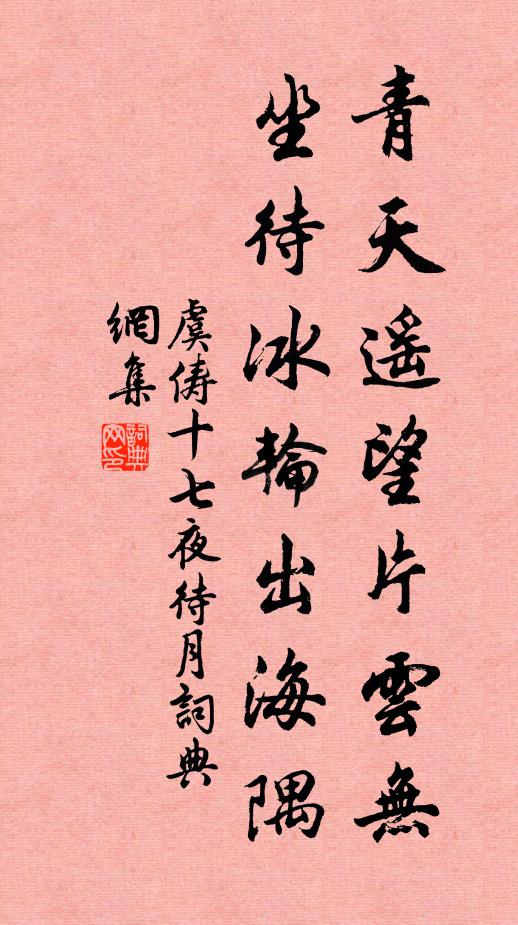 青天遥望片雲無
坐待冰輪出海隅
虞儔十七夜待月詞典
網集
詞典
网印